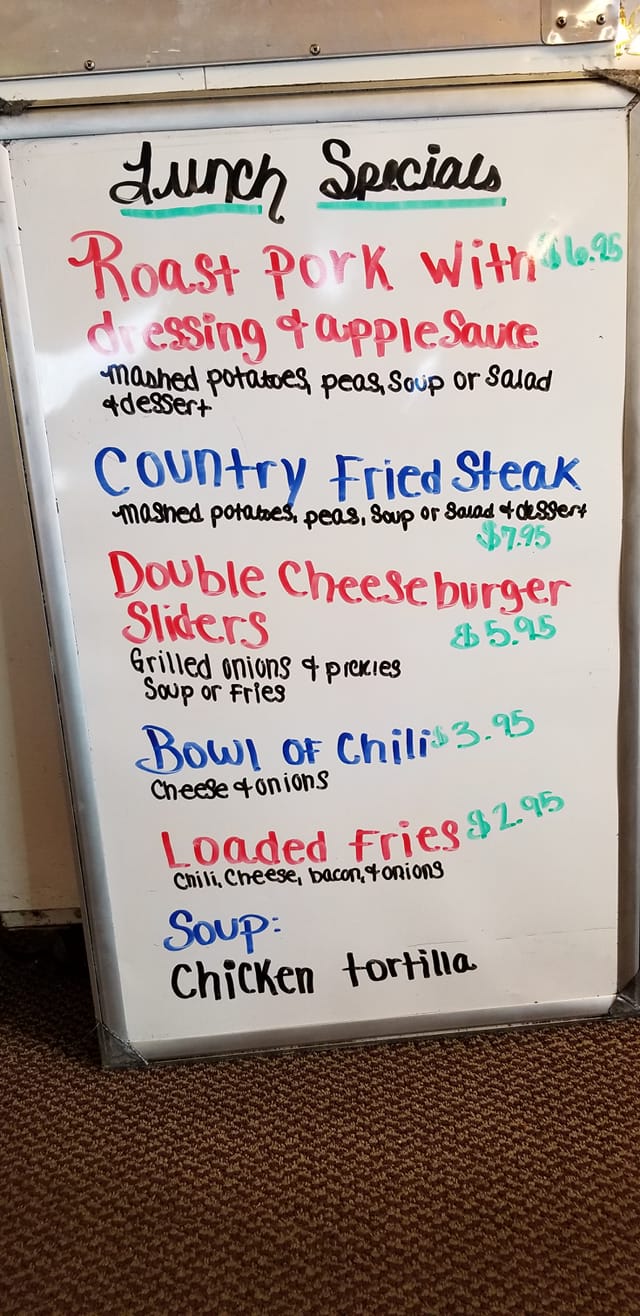 Lunch Specials
Roast Pork with $6.95
dressing & applesauce
mashed potatoes, peas, Soup or Salad
& dessert
Country Fried Steak
mashed potatoes, peas, Soup or Salad & dessert
$7.95
Double Cheeseburger
Sliders $5.95
Grilled onions & pickles
Soup or Fries
Bowl of Chili $3.95
Cheese & onions
Loaded Fries $2.95
Chili, Cheese, bacon, & onions
Soup:
Chicken tortilla